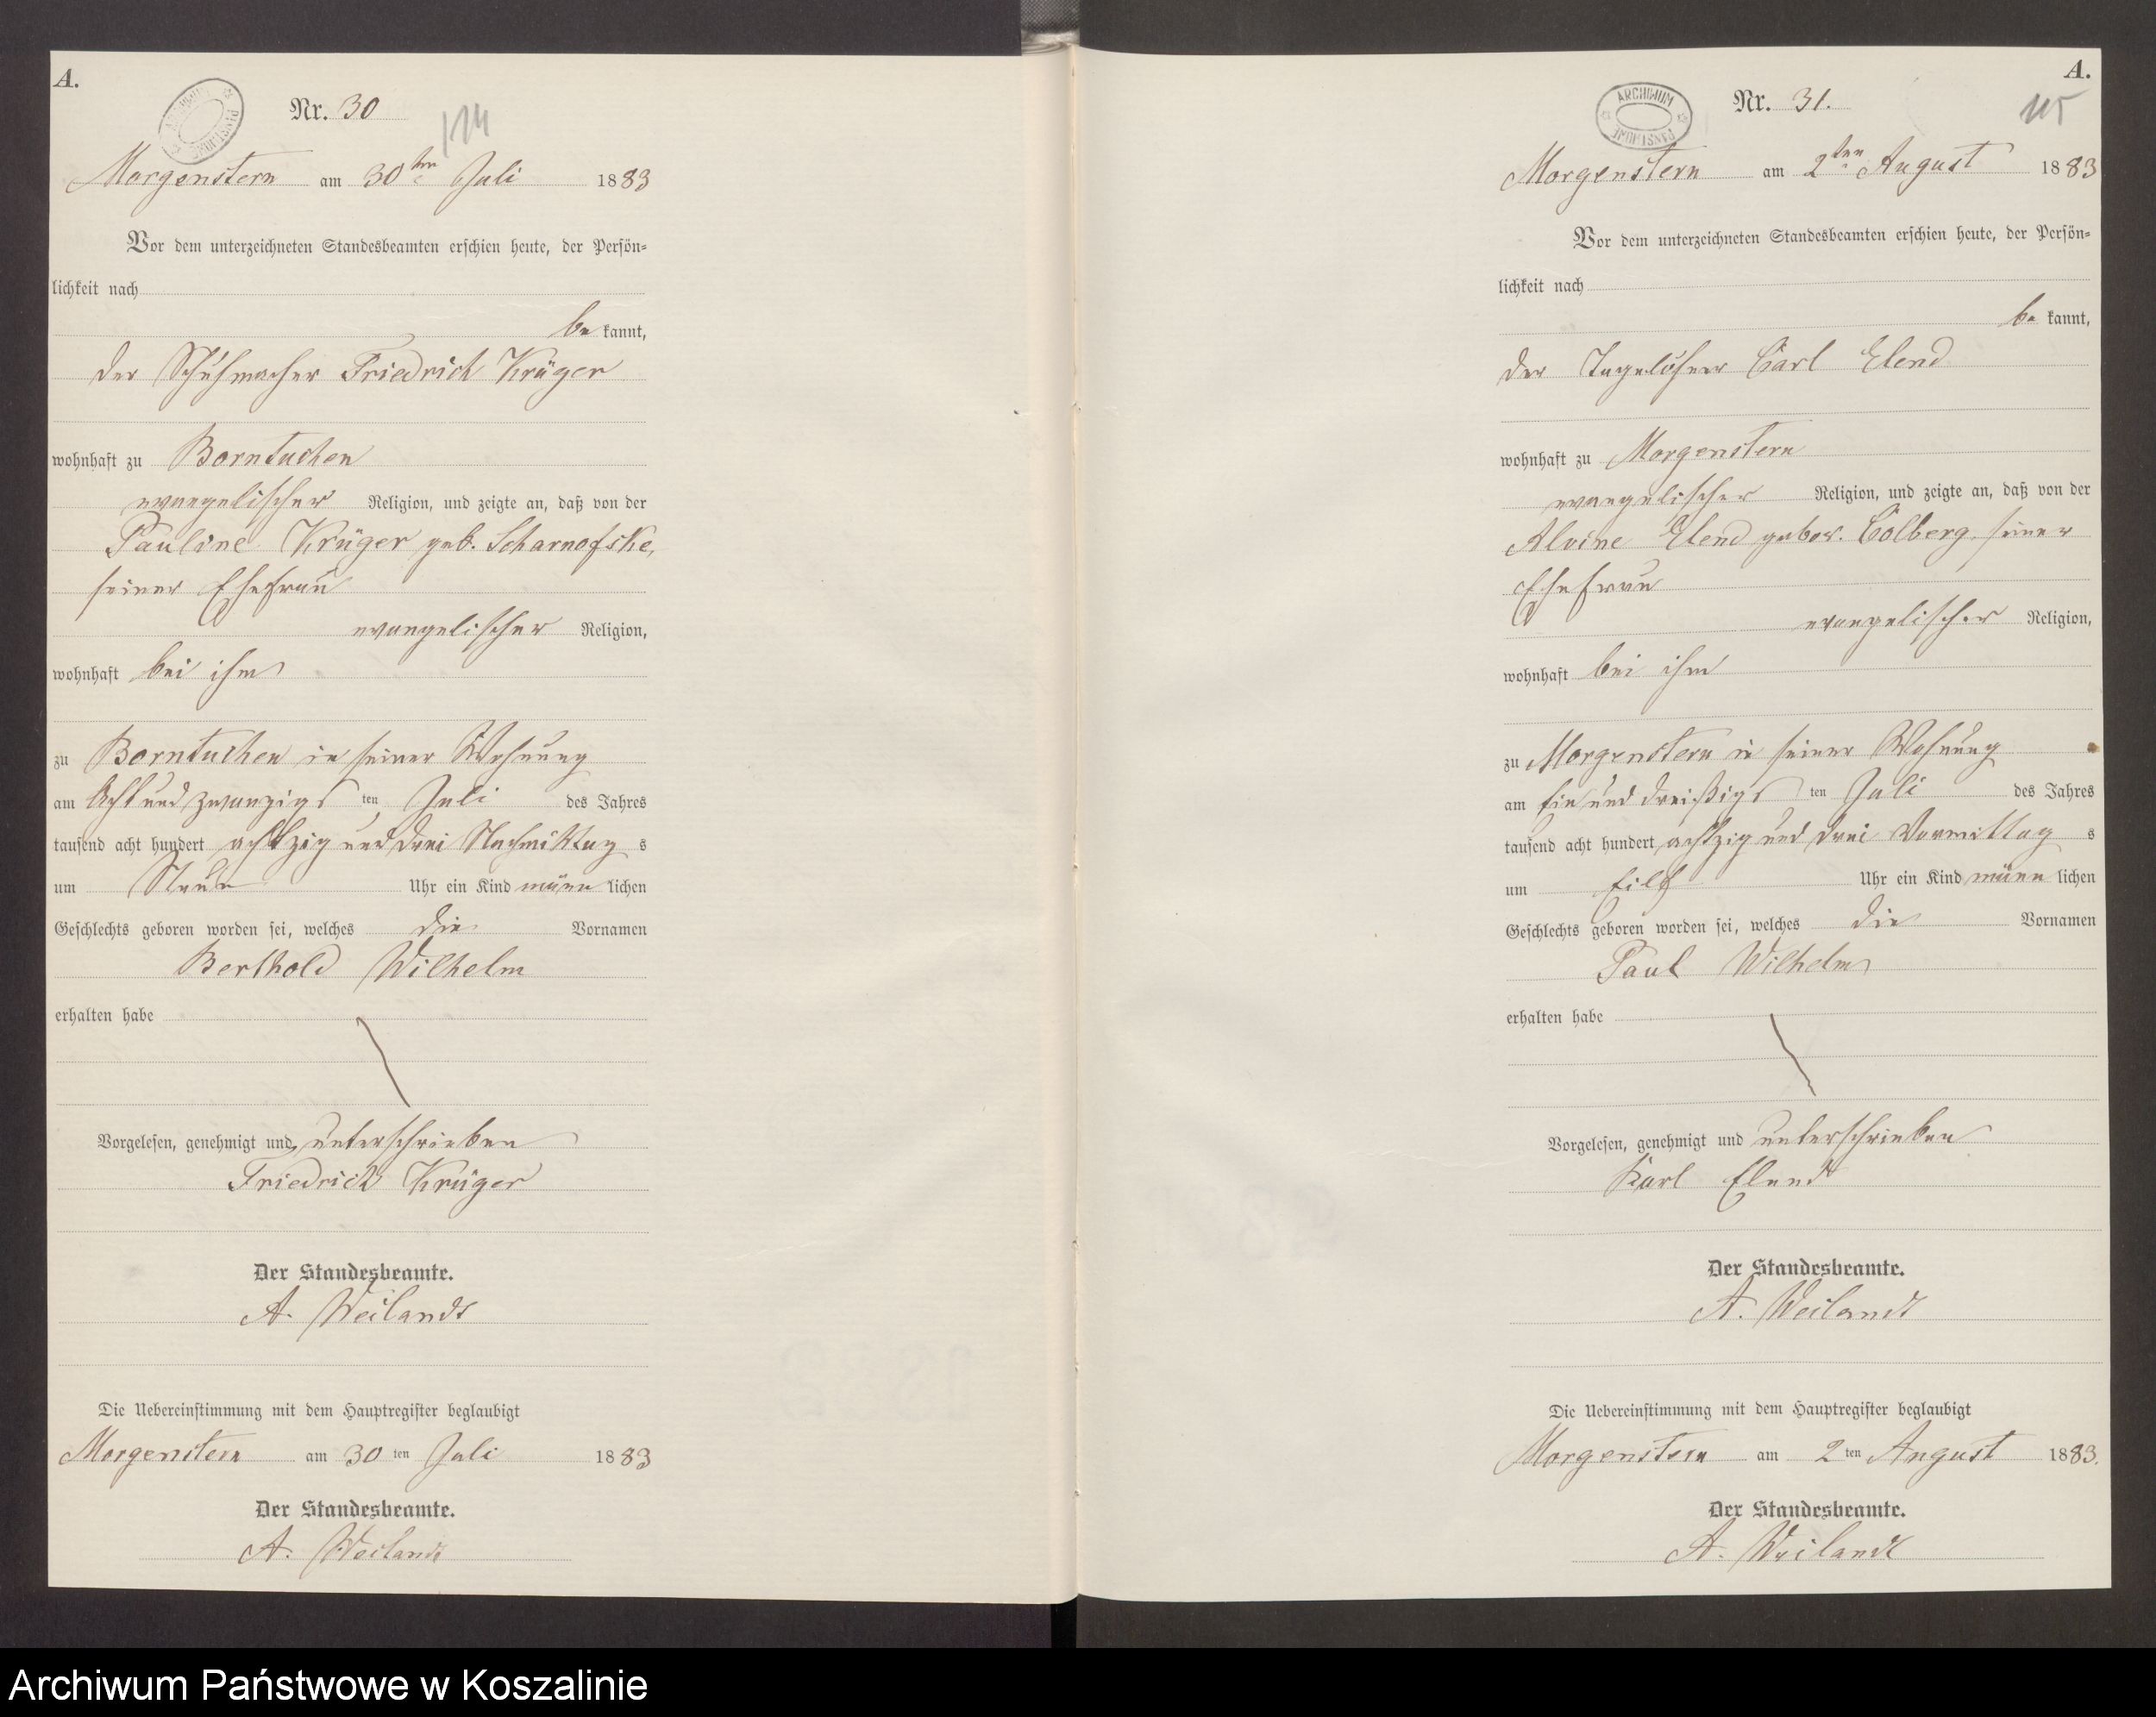 A.
Nr. 30
114
Morgenstern am 30ten Juli 1883
Vor dem unterzeichneten Standesbeamten erschien heute, der Persön=
lichkeit nach
be kannt,
der Schuhmacher Friedrich Krüger
wohnhaft zu Borntuchen
evangelischer Religion, und zeigte an, daß von der
Pauline Krüger geb. Scharnofske,
seiner Ehefrau
evangelischer Religion,
wohnhaft bei ihm
zu Borntuchen in seiner Wohnung
am Acht und zwanzigs ten Juli des Jahres
tausend acht hundert achtzig und drei Nachmittag s
um Neun Uhr ein Kind männ lichen
Geschlechts geboren worden sei, welches die Vornamen
Berthold Wilhelm
erhalten habe
Vorgelesen, genehmigt und unterschrieben
Friedrich Krüger
Der Standesbeamte.
A. Weilandt
Die Uebereinstimmung mit dem Hauptregister beglaubigt
Morgenstern am 30 ten Juli 1883
Der Standesbeamte.
A. Weilandt
A.
ARCHIWUM PAŃSTWOWE
Nr. 31.
115
Morgenstern am 2ten August 1883
Vor dem unterzeichneten Standesbeamten erschien heute, der Persön=
lichkeit nach
be kannt,
der Tagelöhner Carl Elend
wohnhaft zu Morgenstern
evangelischer Religion, und zeigte an, daß von der
Alvine Elend gebor. Colberg, seiner
Ehefrau
evangelischer Religion,
wohnhaft bei ihm
zu Morgenstern in seiner Wohnung
am Ein und dreißigs ten Juli des Jahres
tausend acht hundert achtzig und drei Vormittag s
um Eilf Uhr ein Kind männ lichen
Geschlechts geboren worden sei, welches die Vornamen
Paul Wilhelm
erhalten habe
Vorgelesen, genehmigt und unterschrieben
Karl Elend
Der Standesbeamte.
A. Weilandt
Die Uebereinstimmung mit dem Hauptregister beglaubigt
Morgenstern am 2 ten August 1883.
Der Standesbeamte.
A. Weilandt
Archiwum Państwowe w Koszalinie